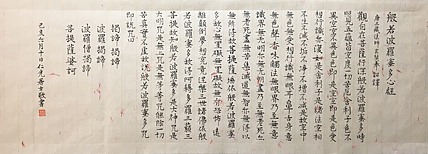 般若波羅蜜多心經
唐三藏法師玄奘奉詔譯
觀自在菩薩行深般若波羅蜜多時
照見五蘊皆空度一切苦厄舍利子色不
異空空不異色色即是空空即是色受
想行識亦復如是舍利子是諸法空相
不生不滅不垢不淨不增不減是故空中
無色無受想行識無眼耳鼻舌身意
無色聲香味觸法無眼界乃至無意
識界無無明亦無無明盡乃至無老死亦
無老死盡無苦集滅道無智亦無得以
無所得故菩提薩埵依般若波羅蜜
多故心無罣礙無罣礙故無有恐怖遠
離顛倒夢想究竟涅槃三世諸佛依般
若波羅蜜多故得阿耨多羅三藐三
菩提故知般若波羅蜜多是大神咒是
大明咒是無上咒是無等等咒能除一切
苦真實不虛故說般若波羅蜜多咒
即說咒曰
揭諦揭諦
波羅揭諦
波羅僧揭諦
菩提薩婆訶
己亥六月敬書